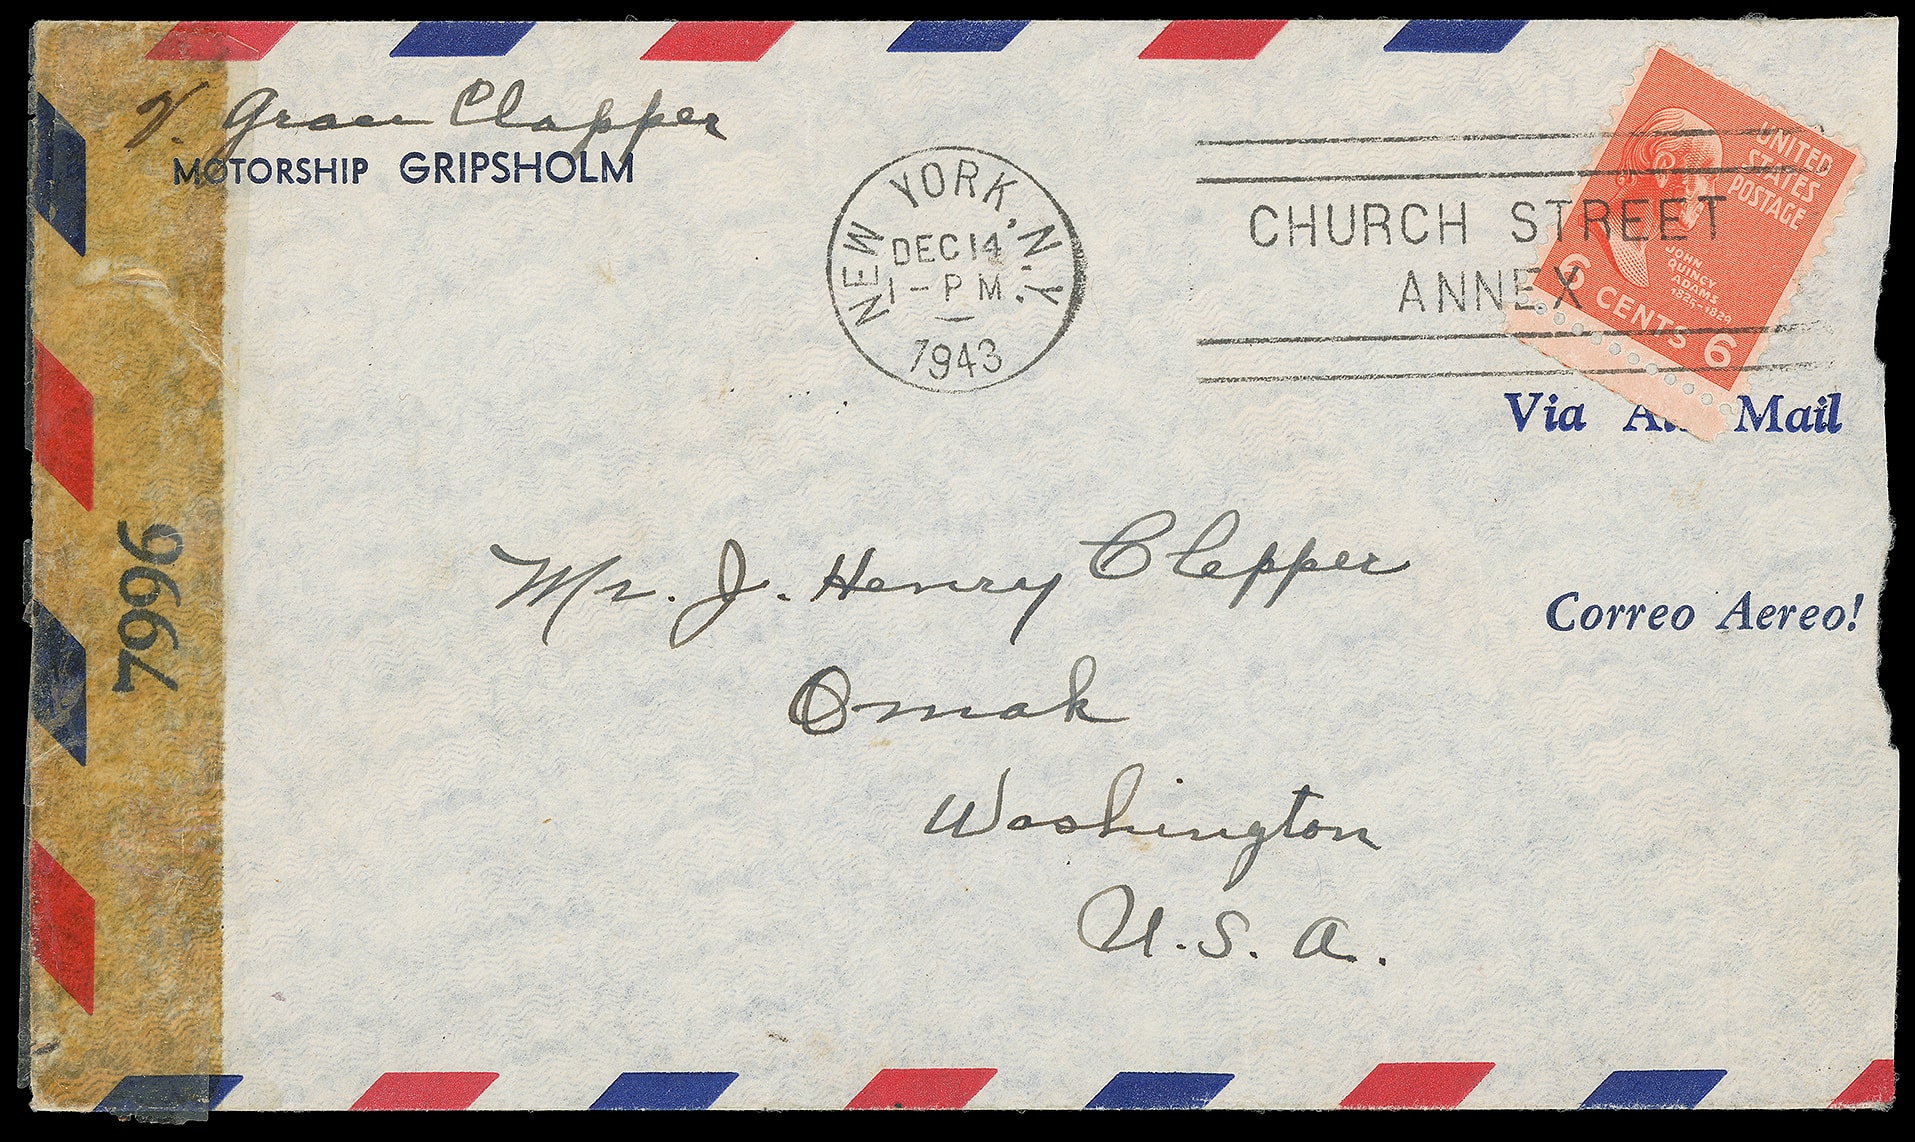 V. Grace Clapper
MOTORSHIP GRIPSHOLM
NEW YORK, N.Y.
DEC 14
1-PM
1943
CHURCH STREET
ANNEX
UNITED
STATES
POSTAGE
JOHN
QUINCY
ADAMS
1825-1829
6 CENTS 6
Via Air Mail
Mr. J. Henry Clepper
Correo Aereo!
Omak
Washington
U.S.A.
7996